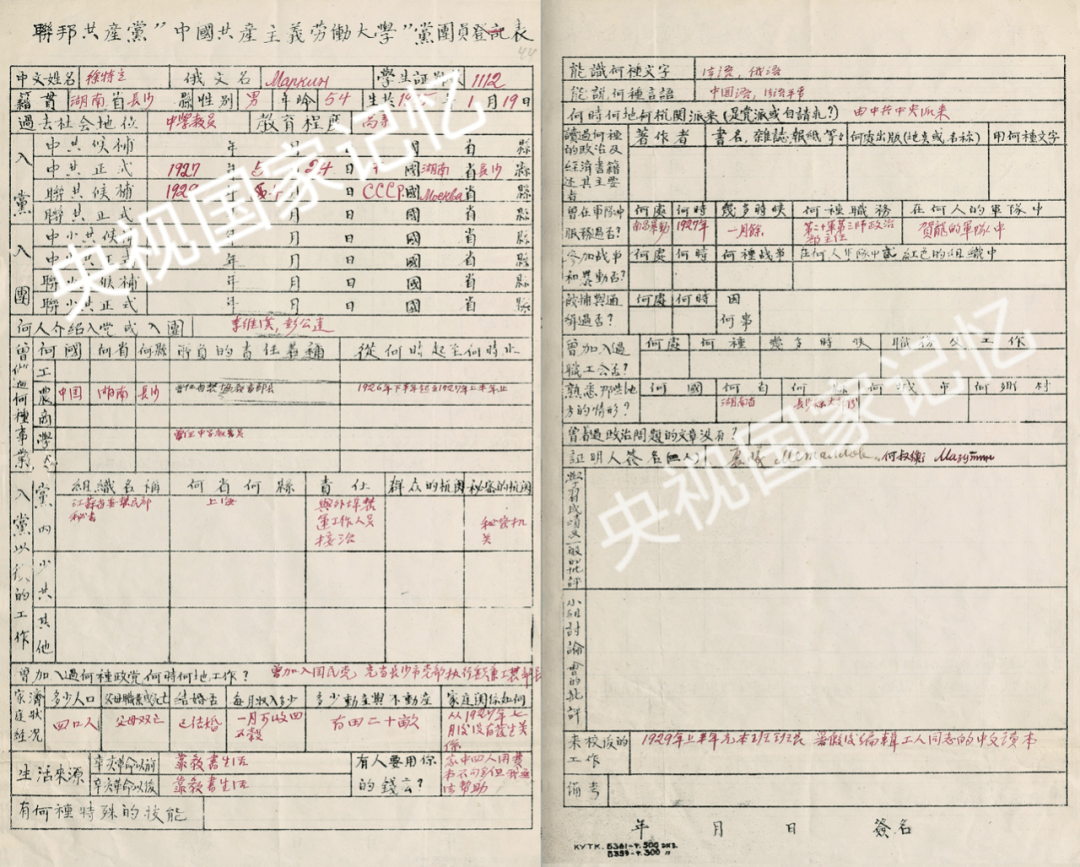 聯邦共產黨"中國共產主義勞働大學"黨團員登記表
44
中文姓名 徐特立 俄文名 Маркин 学生証 1112
籍貫 湖南省長沙 性別 男 年岭 54 生於 年1月19日
過去社会地位 中學教員 教育程度 高等
入黨
中共候補 年 月 日 國 省 縣
中共正式 1927 年 5 月 24 日 國湖南省長沙縣
聯共候補 年 月 日 CCCP.國Москва省 縣
聯共正式 年 月 日 國 省 縣
入團
中少共候 年 月 日 國 省 縣
中少共正式 年 月 日 國 省 縣
聯少共候補 年 月 日 國 省 縣
聯少共正式 年 月 日 國 省 縣
何人介紹入党或入團 李維漢,彭公達
曾 何種事業
何國 何省 何縣 所負的責任名稱 從何時起至何時止
工
農 中国 湖南 長沙 1926年下半年起至1927年上半年止
商
學 曾任中等教員
入黨以後的工作
組織名稱 何省何縣 責任 群众的机関 秘密的机関
黨内 江蘇省委 秘書 上海 工作人員接洽 秘密机关
少共
其他
曾加入過何種政党何時何地工作? 曾加入国民党
家庭狀况
多少人口 父母職業或死亡 結婚否 每月收入多少 多少動產與不動產 家庭関係如何
四口人 父母双亡 已结婚 有田二十畝
生活來源
辛亥革命以前 靠教書生活
辛亥革命以後 靠教書生活
有人要用你的錢么?
有何種特殊的技能
能識何種文字 法语,俄语
能説何種言語 中国语,
何時何地何机関派來(是党派或自請扎?) 由中共中央派来
讀過何種的政治及經濟書籍述其主要者
著作者 書名,雜誌,報紙等 何處出版(地点或名称) 用何種文字
曾在軍隊中服務過否?
何處 何時 幾多時候 何種職務 在何人的軍隊中
南昌暴動 1927年 一月餘 第二十軍第三師政治部主任 賀龍的軍隊中
参加战事和暴動否?
何處 何時 何種战事 在何人軍隊中或紅色的組織中
被捕與通緝過否?
何處 何時 因何事
曾加入過職工会否?
何處 何種 幾多時候 職務及工作
熟悉那些地方的情形?
何國 何省 何縣 何城市 何鄉村
湖南省
曾著過政治問題的文章没有?
証明人签名(無人) 何叔衡
小組討論会的批評
来校後的工作 1929年上半年充本班班長 暑假後編輯工人同志的中文讀本
備考
年 月 日 簽名
КУТК. Б361-т. 500 экз.
Б359-т. 300 "
央视国家记忆
央视国家记忆